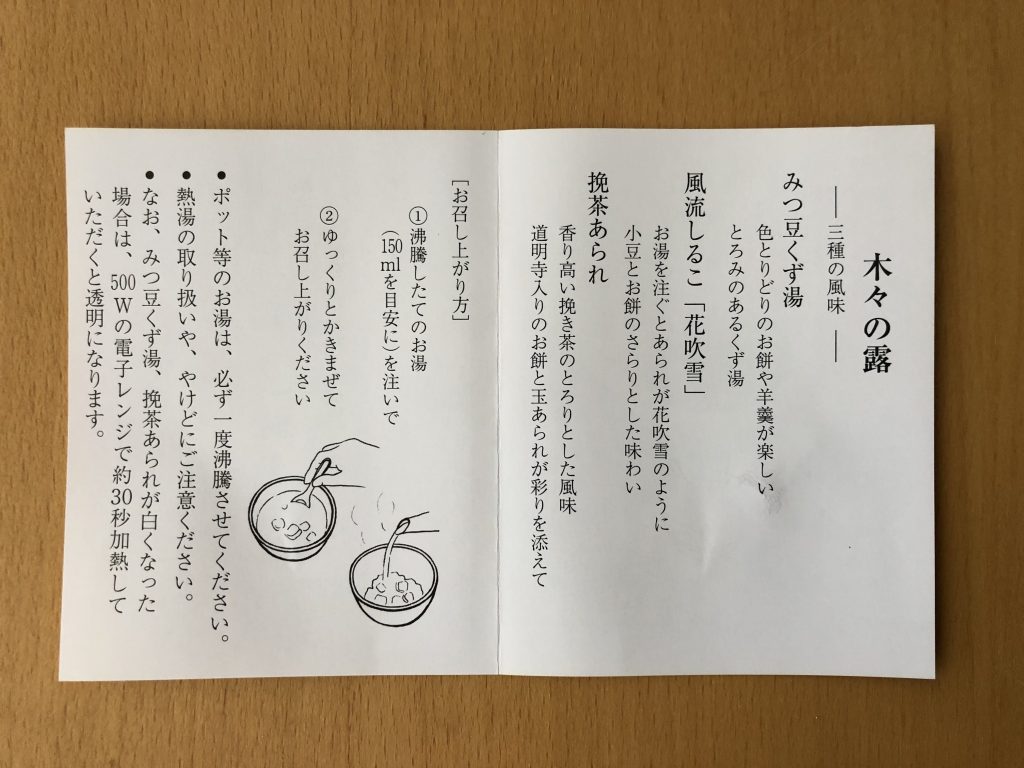 木々の露
― 三種の風味 ―
みつ豆くず湯
色とりどりのお餅や羊羹が楽しい
とろみのあるくず湯
風流しるこ「花吹雪」
お湯を注ぐとあられが花吹雪のように
小豆とお餅のさらりとした味わい
挽茶あられ
香り高い挽き茶のとろりとした風味
道明寺入りのお餅と玉あられが彩りを添えて
［お召し上がり方］
①沸騰したてのお湯
（150mlを目安に）を注いで
②ゆっくりとかきまぜて
お召し上がりください
●ポット等のお湯は、必ず一度沸騰させてください。
●熱湯の取り扱いや、やけどにご注意ください。
●なお、みつ豆くず湯、挽茶あられが白くなった
場合は、500Wの電子レンジで約30秒加熱して
いただくと透明になります。